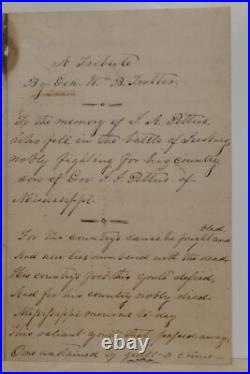 A Tribute
By Gen. W. B. Trotter.
To the memory of J. A. Pettus,
who fell in the battle of Leesburg
nobly fighting for his country
son of Gov J. J. Pettus of
Mississippi.
For his country's cause he fought and bled.
And now lies numbered with the dead
His country's foes, this youth defied,
And for his country nobly died.
Mississippi mourns to day
This valiant youth that passed away
One unstained by guilt or crime
© 193.com